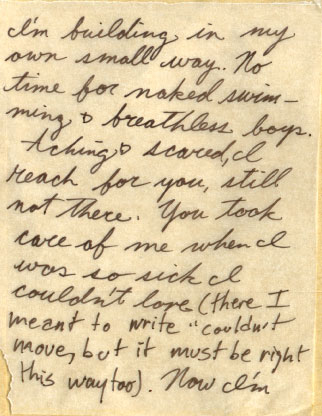 I'm building in my
own small way. No
time for naked swim-
ming & breathless boys.
Aching & scared, I
reach for you, still
not there. You took
care of me when I
was so sick I
couldn't love (there I
meant to write "couldn't
move, but it must be right
this way too). Now I'm